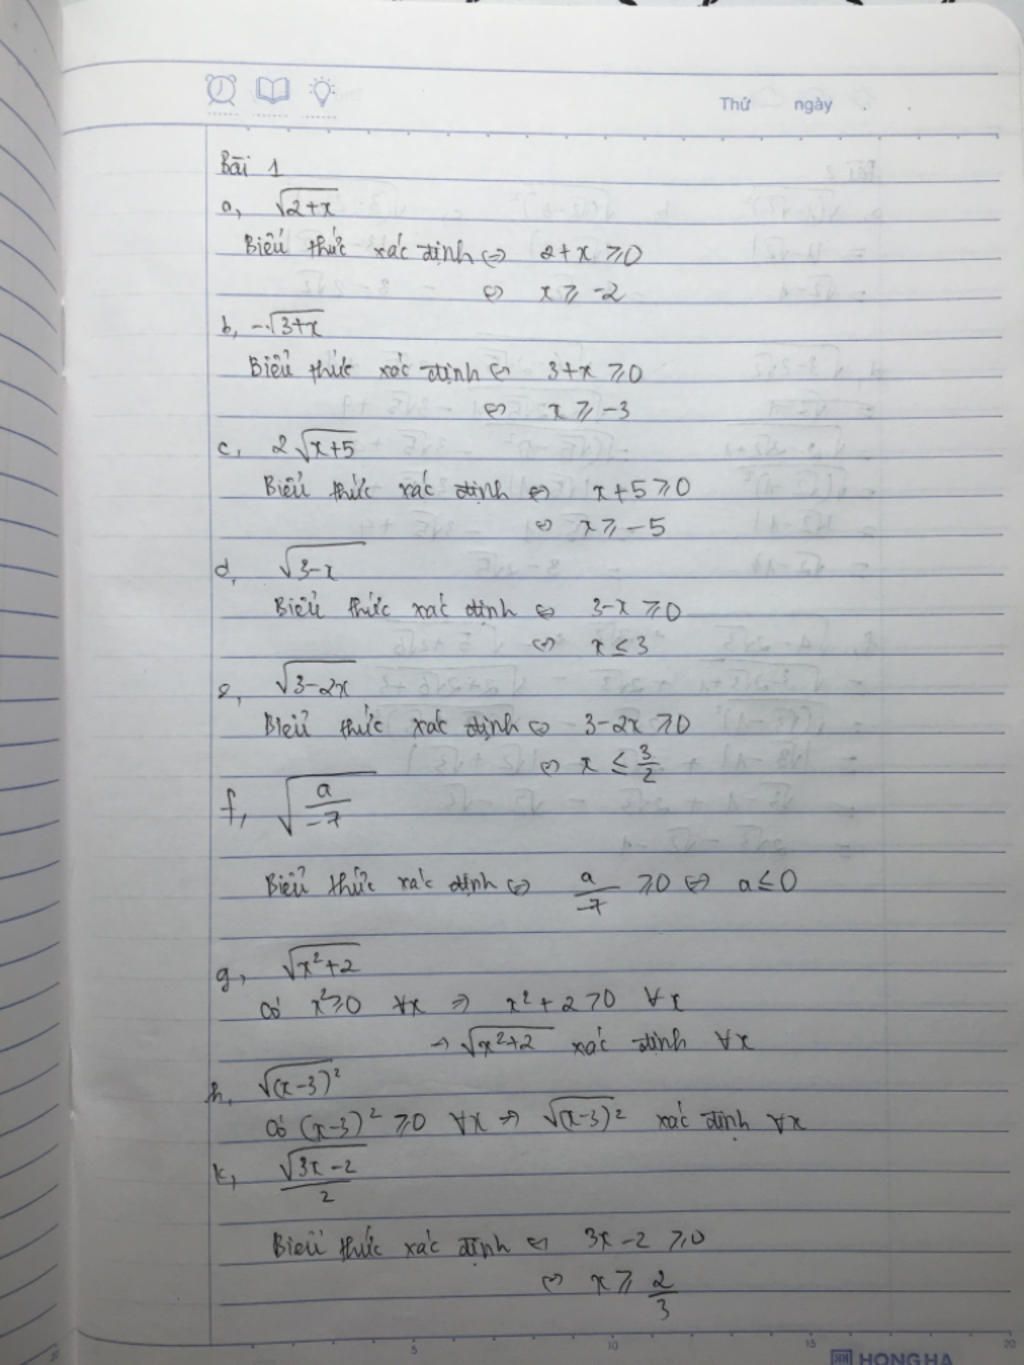 Thứ ngày
Bài 1
a, √2+x
Biểu thức xác định ⇔ 2+x ⩾0
⇔ x ⩾ -2
b, -√3+x
Biểu thức xác định ⇔ 3+x ⩾0
⇔ x ⩾ -3
c, 2√x+5
Biểu thức xác định ⇔ x+5⩾0
⇔ x⩾ -5
d, √3-x
Biểu thức xác định ⇔ 3-x ⩾0
⇔ x ≤ 3
e, √3-2x
Biểu thức xác định ⇔ 3-2x ⩾0
⇔ x ≤ 3/2
f, √a/-7
Biểu thức xác định ⇔ a/-7 ⩾0 ⇔ a≤0
g, √x²+2
Có x²⩾0 ∀x ⇒ x²+2>0 ∀x
→ √x²+2 xác định ∀x
h, √(x-3)²
Có (x-3)² ⩾0 ∀x ⇒ √(x-3)² xác định ∀x
k, √3x-2/2
Biểu thức xác định ⇔ 3x-2 ⩾0
⇔ x ⩾ 2/3
5 10 15 20
HONG HA